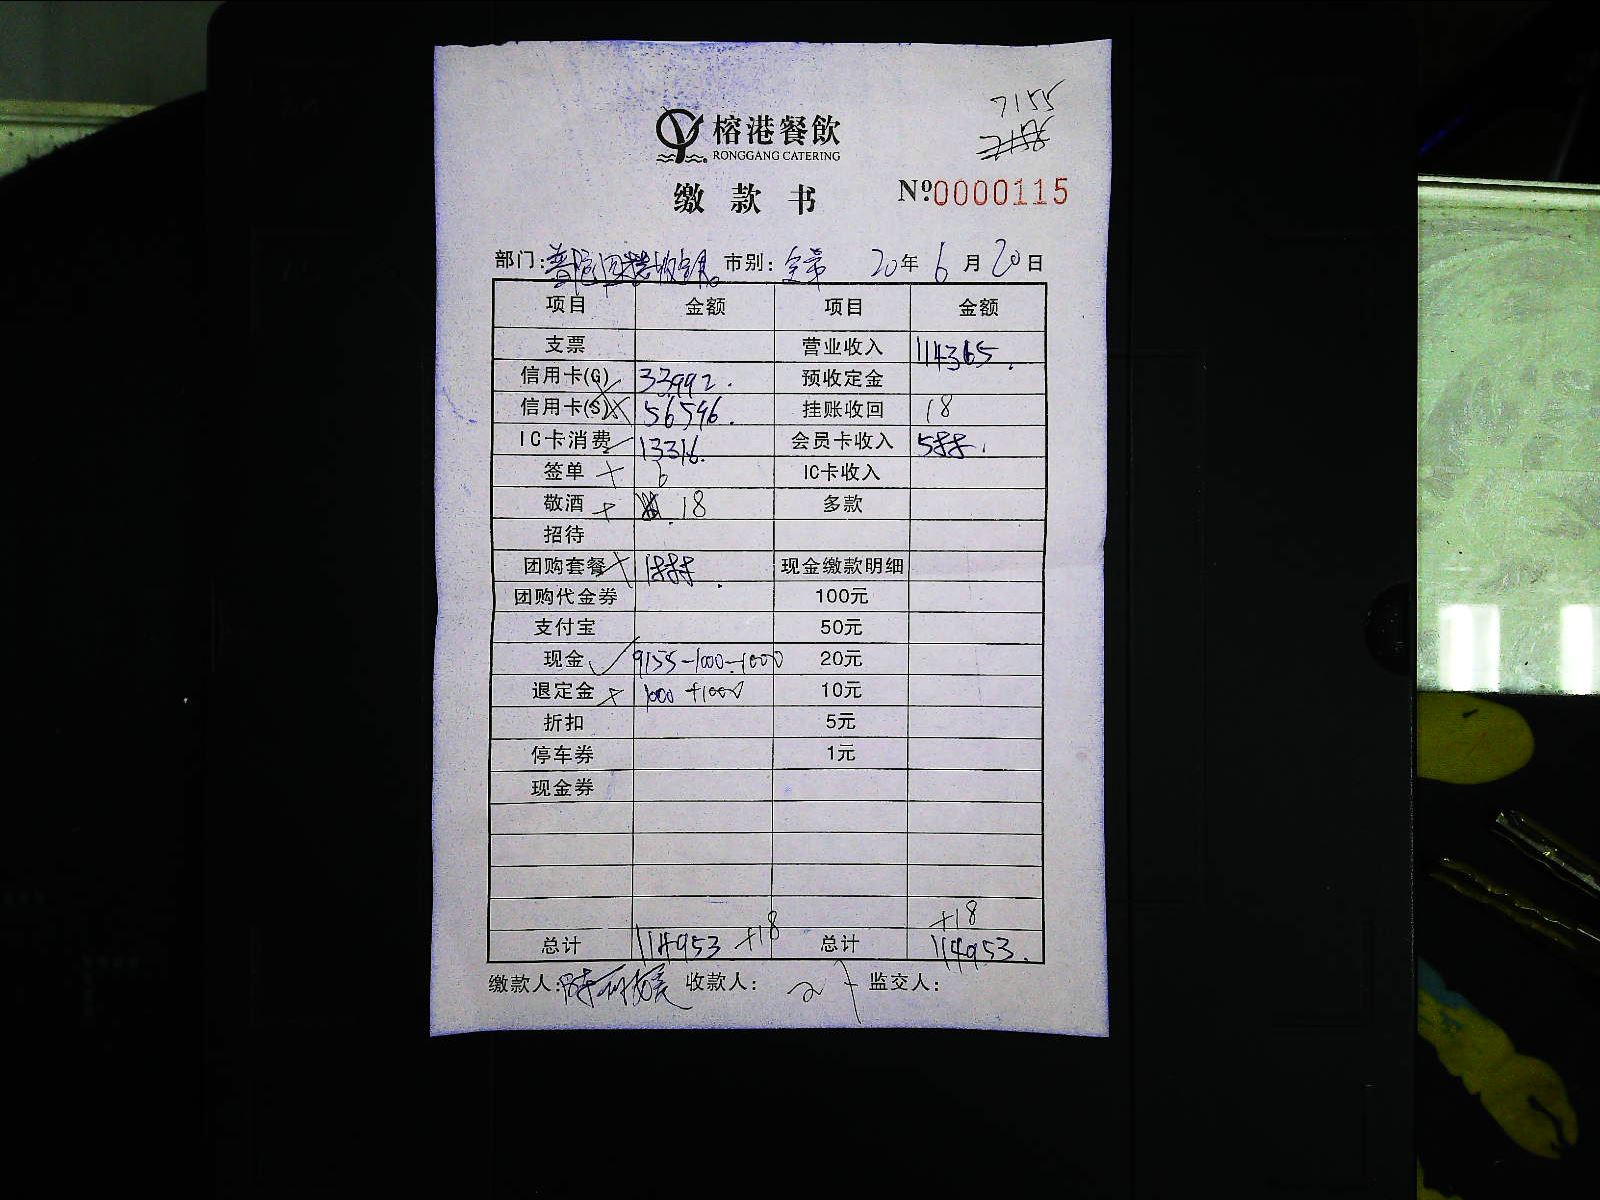 7155
榕港餐飲
RONGGANG CATERING
缴款书 №0000115
部门: 市别: 20年6月20日
项目 金额 项目 金额
支票 营业收入 114365.
信用卡(G) 33992. 预收定金
信用卡(S) 56596. 挂账收回 18
IC卡消费 13316. 会员卡收入
签单 6 IC卡收入
敬酒 18 多款
招待
团购套餐 现金缴款明细
团购代金券 100元
支付宝 50元
现金 9155-1000-1000 20元
退定金 1000+1000 10元
折扣 5元
停车券 1元
现金券
+18
总计 114953 +18 总计 114953.
缴款人: 收款人: 监交人: